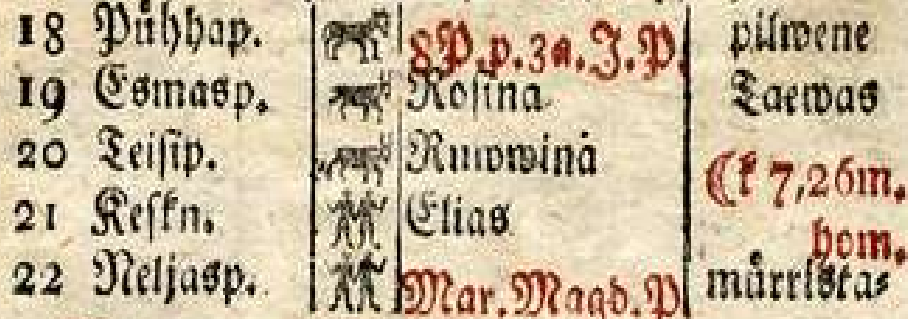 18 Pühhap. 8P.p.3a.J.P. pilwene
19 Esmasp. Rosina Taewas
20 Teisip. Ruwwinä
☾k 7,26m.
21 Keskn. Elias
hom.
22 Neljasp. Mar. Magd. P märriska=